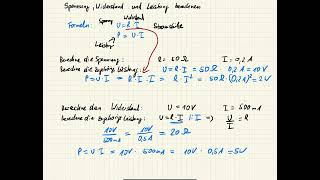 Spannung, Widerstand und Leistung berechnen
Widerstand
Spannung
Formeln: U = R · I Stromstärke
P = U · I
Leistung
Berechne die Spannung: R = 50Ω I = 0,2A
Berechne die Leistung: U = R · I = 50Ω · 0,2A = 10V
P = U · I = R · I · I = R · I² = 50Ω · (0,2A)² = 2W
Berechne den Widerstand: U = 10V I = 500mA
Berechne die Leistung: U = R · I |:I => U/I = R
10V/500mA = 10V/0,5A = 20Ω
P = U · I = 10V · 500mA = 10V · 0,5A = 5W